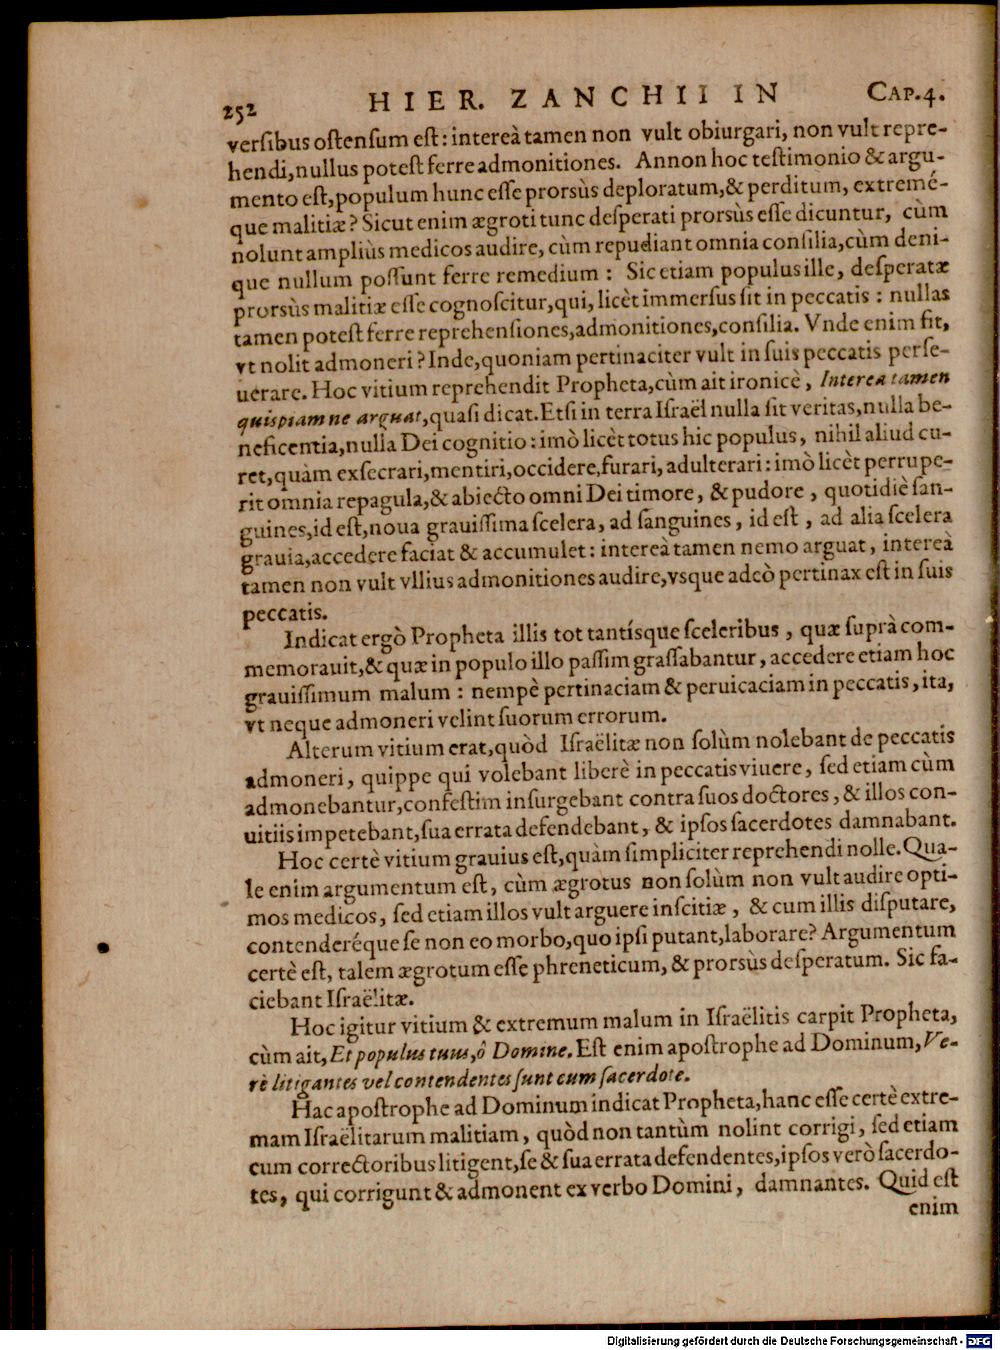 252 HIER. ZANCHII IN CAP.4.
verſibus oſtenſum eſt: intereà tamen non vult obiurgari, non vult repre-
hendi, nullus poteſt ferre admonitiones. Annon hoc teſtimonio & argu-
mento eſt, populum hunc eſſe prorsùs deploratum, & perditum, extremé-
que malitiæ? Sicut enim ægroti tunc deſperati prorsùs eſſe dicuntur, cùm
nolunt ampliùs medicos audire, cùm repudiant omnia conſilia, cùm deni-
que nullum poſſunt ferre remedium: Sic etiam populus ille, deſperatæ
prorsùs malitiæ eſſe cognoſcitur, qui, licèt immerſus ſit in peccatis: nullas
tamen poteſt ferre reprehenſiones, admonitiones, conſilia. Vnde enim fit,
vt nolit admoneri? Inde, quoniam pertinaciter vult in ſuis peccatis perſe-
uerare. Hoc vitium reprehendit Propheta, cùm ait ironicè, Interea tamen
quispiam ne arguat, quaſi dicat. Etſi in terra Iſraël nulla ſit veritas, nulla be-
neficentia, nulla Dei cognitio: imò licèt totus hic populus, nihil aliud cu-
ret, quàm exſecrari, mentiri, occidere, furari, adulterari: imò licèt perrupe-
rit omnia repagula, & abiecto omni Dei timore, & pudore, quotidiè ſan-
guines, id eſt, noua grauiſſima ſcelera, ad ſanguines, id eſt, ad alia ſcelera
grauia, accedere faciat & accumulet: intereà tamen nemo arguat, intereà
tamen non vult vllius admonitiones audire, vsque adeò pertinax eſt in ſuis
peccatis.
Indicat ergò Propheta illis tot tantísque ſceleribus, quæ ſuprà com-
memorauit, & quæ in populo illo paſſim graſſabantur, accedere etiam hoc
grauiſſimum malum: nempè pertinaciam & peruicaciam in peccatis, ita,
vt neque admoneri velint ſuorum errorum.
Alterum vitium erat, quòd Iſraëlitæ non ſolùm nolebant de peccatis
admoneri, quippe qui volebant liberè in peccatis viuere, ſed etiam cùm
admonebantur, confeſtim inſurgebant contra ſuos doctores, & illos con-
uitiis impetebant, ſua errata defendebant, & ipſos ſacerdotes damnabant.
Hoc certè vitium grauius eſt, quàm ſimpliciter reprehendi nolle. Qua-
le enim argumentum eſt, cùm ægrotus non ſolùm non vult audire opti-
mos medicos, ſed etiam illos vult arguere inſcitiæ, & cum illis diſputare,
contenderéque ſe non eo morbo, quo ipſi putant, laborare? Argumentum
certè eſt, talem ægrotum eſſe phreneticum, & prorsùs deſperatum. Sic fa-
ciebant Iſraëlitæ.
Hoc igitur vitium & extremum malum in Iſraëlitis carpit Propheta,
cùm ait, Et populus tuus, ô Domine. Eſt enim apoſtrophe ad Dominum, Ve-
rè litigantes vel contendentes ſunt cum ſacerdote.
Hac apoſtrophe ad Dominum indicat Propheta, hanc eſſe certè extre-
mam Iſraëlitarum malitiam, quòd non tantùm nolint corrigi, ſed etiam
cum correctoribus litigent, ſe & ſua errata defendentes, ipſos verò ſacerdo-
tes, qui corrigunt & admonent ex verbo Domini, damnantes. Quid eſt
enim
Digitalisierung gefördert durch die Deutsche Forschungsgemeinschaft - DFG